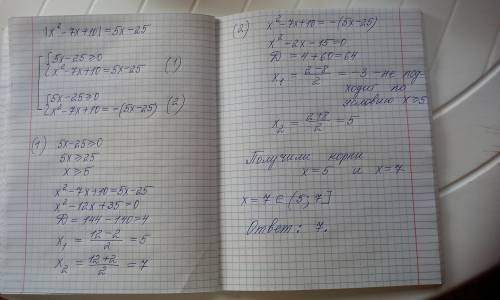 |x²-7x+10|=5x-25
5x-25≥0
x²-7x+10=5x-25 (1)
5x-25≥0
x²-7x+10=-(5x-25) (2)
(1) 5x-25≥0
5x≥25
x≥5
x²-7x+10=5x-25
x²-12x+35=0
D=144-140=4
x₁=(12-2)/2=5
x₂=(12+2)/2=7
(2) x²-7x+10=-(5x-25)
x²-2x-15=0
D=4+60=64
x₁=(2-8)/2=-3-не под-
ходит по
условию x≥5
x₂=(2+8)/2=5
Получили корни
x=5 и x=7
x=7∈(5;7]
Ответ: 7.